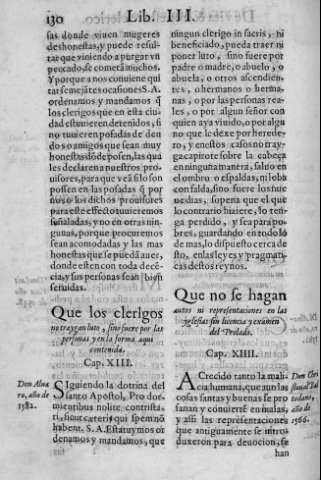 130 Lib. III.
sas donde viuen mugeres
deshonestas, y puede resul-
tar que viniendo a purgar vn
peccado, se cometã muchos.
Y porque a nos conuiene qui
tar semejãtes ocasiones S. A.
ordenamos y mandamos q̃
los clerigos que en esta ciu-
dad estuuieren detenidos, si
no tuuieren posadas de deu
dos o amigos que sean muy
honestas dõde posen, las quales
les declaren a nuestros pro-
uisores, para que vea si lo son
possen en las posadas q̃ por
nos o los dichos prouisores
para este effecto tuuieremos
señaladas, y no en otras nin-
gunas, porque procuremos
sean acomodadas y las mas
honestas que se puedã auer,
donde esten con toda decẽ-
cia, y sus personas sean biẽ
seruidas.
Que los clerigos
no traygan luto, sino fuere por las
personas y en la forma aqui
contenida.
Cap. XIII.
Don Alua
ro, año de
1582.
Siguiendo la dotrina del
santo Apostol, Pro dor-
mientibus nolite contrista-
ri, sicut cæteri qui spem nõ
habent. S. A. Estatuymos or
denamos y mandamos, que
ningun clerigo in sacris, ni
beneficiado, pueda traer ni
poner luto, sino fuere por
padre o madre, o abuelo, o
abuela, o otros ascendien-
tes, o hermanos o herma-
nas, o por las personas rea-
les, o por algun señor con
quien aya viuido, o por algu
no que le dexe por herede-
ro, y en estos casos no tray-
ga capirote sobre la cabeça
en ninguna manera, saluo en
el ombro o espaldas, ni loba
con falda, sino fuere los nue
ue dias, so pena que el que
lo contrario hiziere, lo ten-
ga perdido, y sea para po-
bres, guardando en todo lo
de mas, lo dispuesto cerca de
sto, en las leyes y pragmati-
cas destos reynos.
Que no se hagan
autos ni representaciones en las
yglesias sin licencia y examen
del Prelado.
Cap. XIIII.
Don Chri
stoual Val
todano,
año de
1566.
A Crecido tanto la mali-
cia humana, que aun las
cosas santas y buenas se pro
fanan y conuierten en malas,
y assi las representaciones
que antiguamente se intro-
duxeron para deuocion, se
han